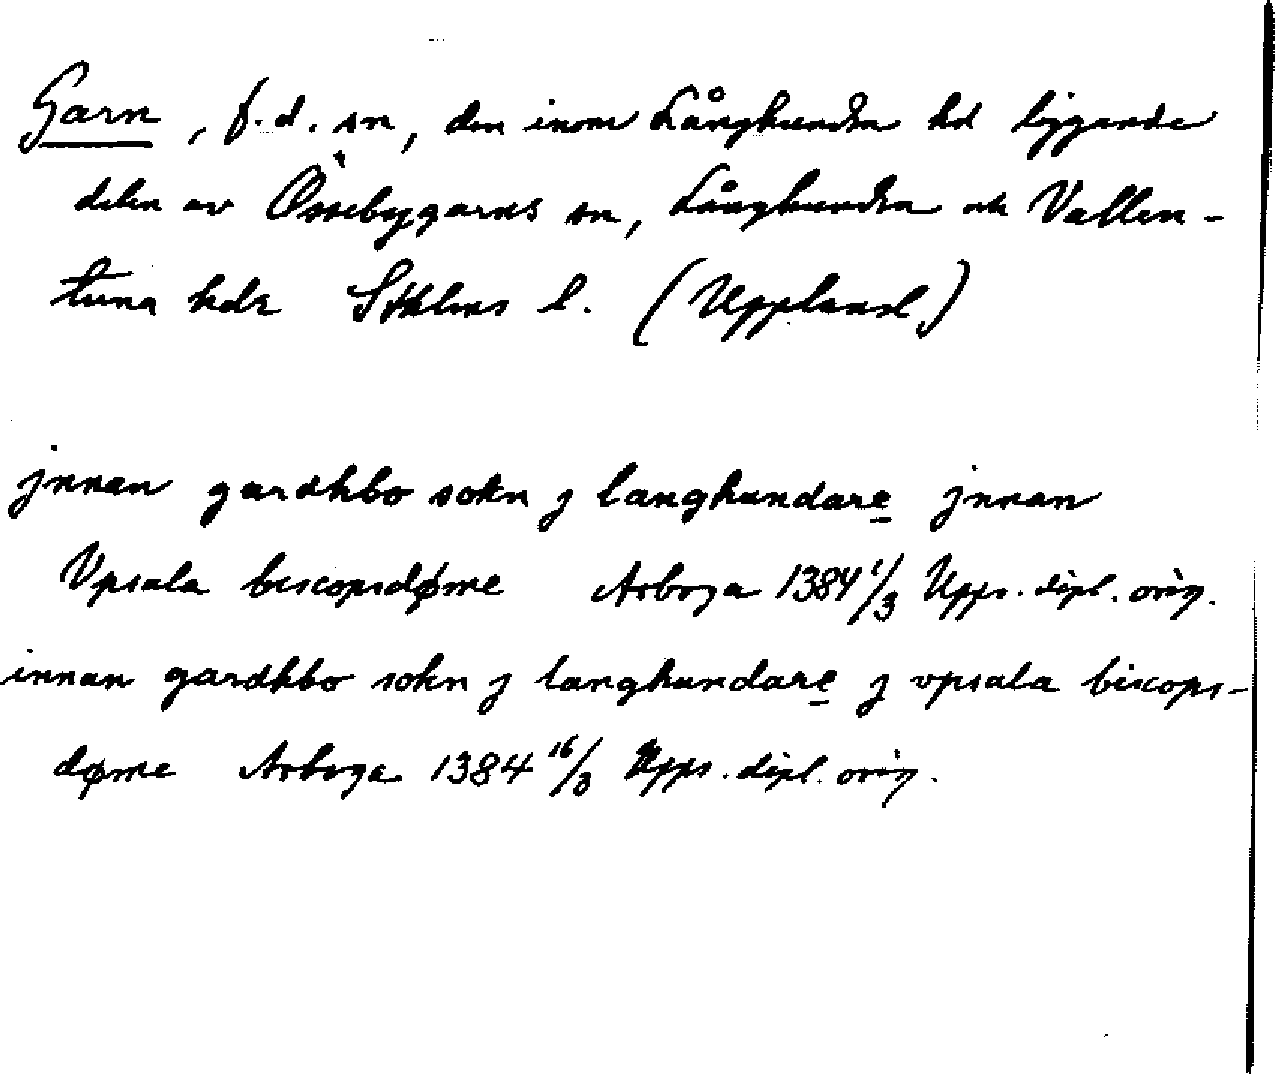 Garn, f.d. sn, den inom Långhundra hd liggande
delen av Össebygarns sn, Långhundra och Vallen-
tuna hdr Sthlms l. (Uppland.)
jnnan gardhbo sokn j langhundare jnnan
Vpsala biscopsdøme Arboga 1384 1/3 Upps. dipl. orig.
innan gardhbo sokn j langhundare j vpsala biscops-
døme Arboga 1384 16/3 Upps. dipl. orig.